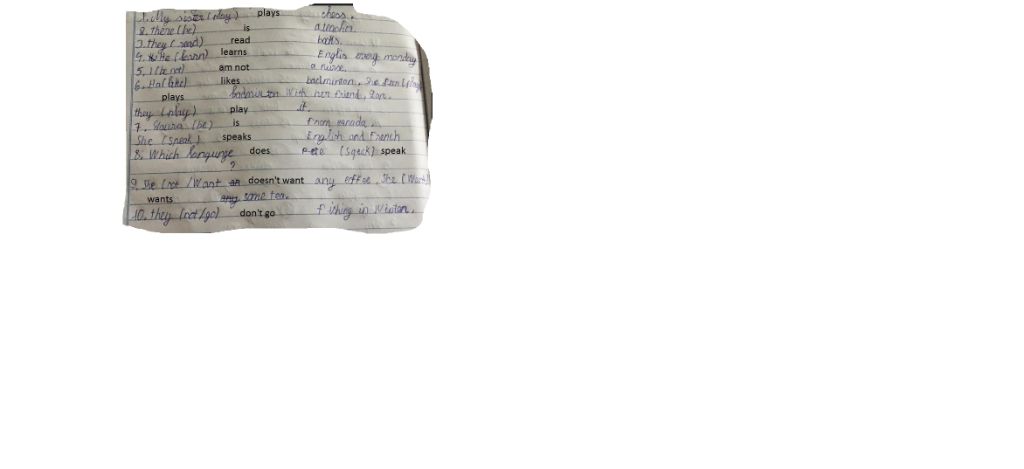 1. My sister (play) plays chess.
2. there (be) is a
3. they (read) read books.
4. He (learn) learns Englis every monday
5. I (be not) am not a nurse.
6. Ha(like) likes badminton. She
plays With her friend,
they (play) play it.
7. (be) is From
She (speak) speaks English and French
8. Which does speak
?
9. She (not /Want doesn't want any . She (Want)
wants some tea.
10. they (not/go) don't go Fishing in